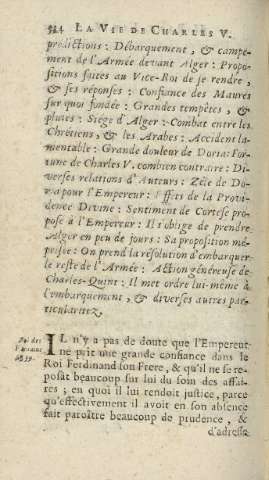 LA VIE DE CHARLES V.
prédictions : Débarquement, & campe-
ment de l'Armée devant Alger : Propo-
sitions faites au Vice-Roi de se rendre,
& ses réponses : Confiance des Maures
sur quoi fondée : Grandes tempêtes, &
pluies : Siége d'Alger : Combat entre les
Chrétiens, & les Arabes : Accident la-
mentable : Grande douleur de Doria : For-
tune de Charles V. combien contraire : Di-
verses relations d'Auteurs : Zéle de Do-
ria pour l'Empereur : Effets de la Provi-
dence Divine : Sentiment de Cortese pro-
posé à l'Empereur : Il s'oblige de prendre
Alger en peu de jours : Sa proposition mé-
prisée : On prend la résolution d'embarquer
le reste de l'Armée : Action généreuse de
Charles-Quint : Il met ordre lui-même à
l'embarquement, & diverses autres par-
ticularitez.
IL n'y a pas de doute que l'Empereur
ne prit une grande confiance dans le
Roi Ferdinand son Frere, & qu'il ne se re-
posât beaucoup sur lui du soin des affai-
res ; en quoi il lui rendoit justice, parce
qu'effectivement il avoit en son absence
fait paroître beaucoup de prudence, &
d'adresse
Roi des